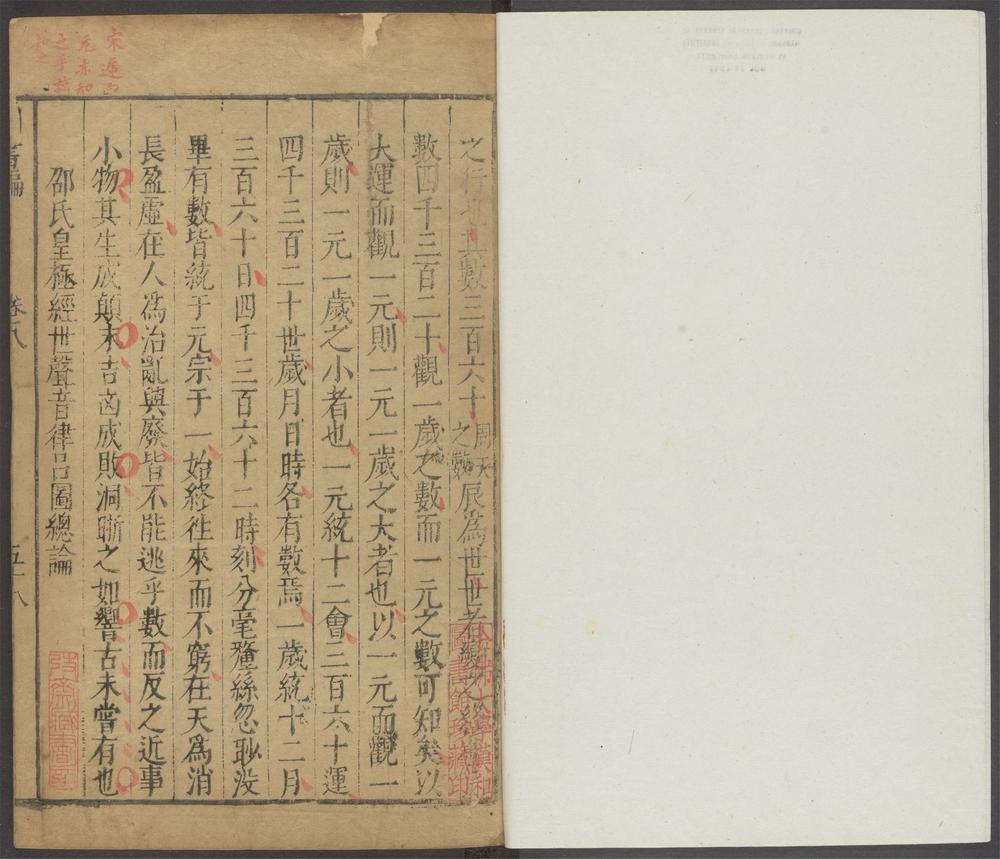 之行也其數三百六十周天之數辰為世世者變之終
數四千三百二十觀一歲之數而一元之數可知矣以
大運而觀一元則一元一歲之大者也以一元而觀一
歲則一元一歲之小者也一元統十二會三百六十運
四千三百二十世歲月日時各有數焉一歲統十二月
三百六十日四千三百六十二時刻分毫釐絲忽眇沒
畢有數皆統于元宗于一始終往來而不窮在天為消
長盈虛在人為治亂興廢皆不能逃乎數而反之近事
小物其生成顛末吉凶成敗洞晰之如響古未嘗有也
邵氏皇極經世聲音律呂圖總論
卷八
五十八